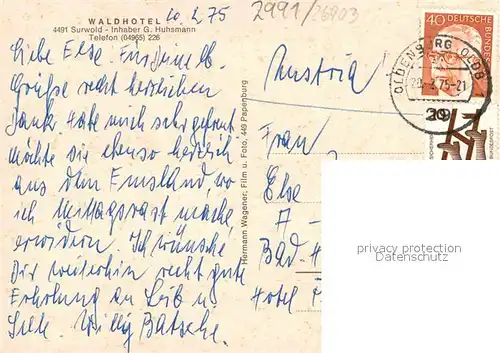 20.2.75
2991/26803
WALDHOTEL
4491 Surwold - Inhaber G. Huhsmann
Telefon (04965) 226
Liebe Else. Für Deine lb.
Grüße recht herzlichen
Dank habe mich sehr gefreut
möchte sie ebenso herzlich
aus dem Emsland, wo
ich Mittagsrast mache,
erwidern. Ich wünsche
Dir weiterhin recht gute
Erholung an Leib u
Seele. Willy Batsche.
Hermann Wagener, Film u. Foto, 449 Papenburg
40 DEUTSCHE BUNDES
OLDENBURG OLDB
75-21
Austria
Frau
Else
A -
Bad - H
Hotel
privacy protection
Datenschutz